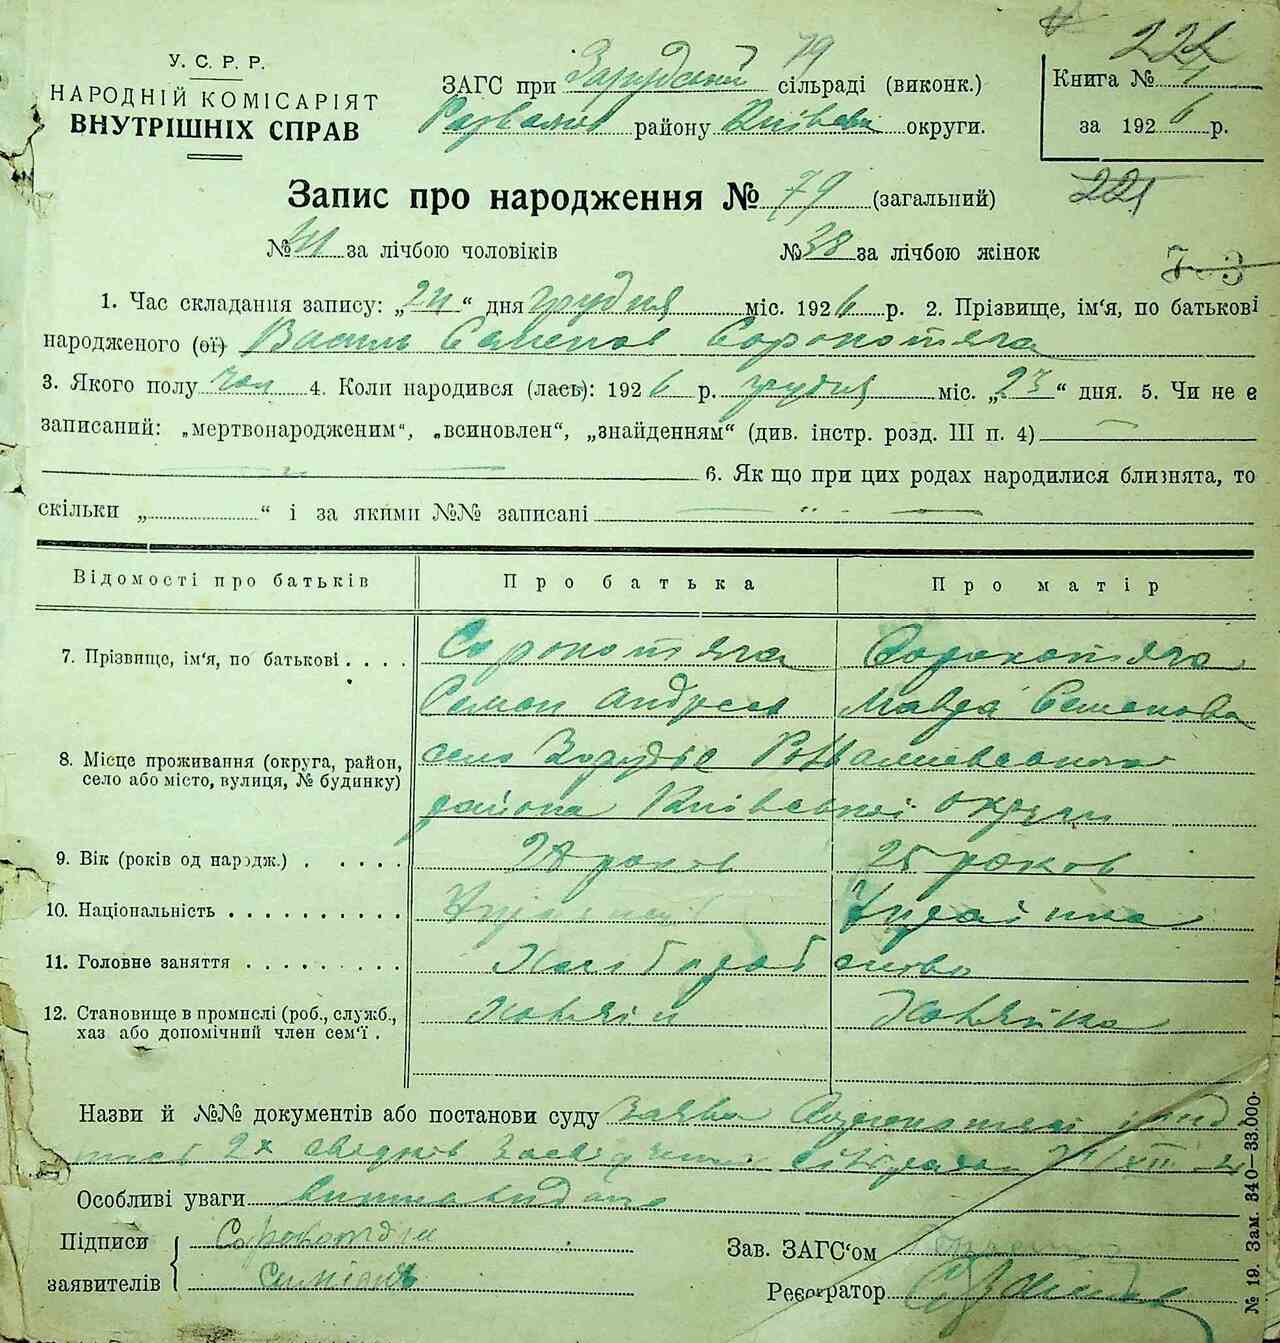 222
У. С. Р. Р.
НАРОДНІЙ КОМІСАРІЯТ
ВНУТРІШНІХ СПРАВ
ЗАГС при Зарудській 79 сільраді (виконк.)
району Київськ округи.
Книга №
за 1926 р.
Запис про народження № 79 (загальний)
221
№ 41 за лічбою чоловіків № 38 за лічбою жінок
1. Час складання запису: „24“ дня грудня міс. 1926 р. 2. Прізвище, ім‘я, по батькові
народженого (ої) Василь Семенов Сорокотяга
3. Якого полу чол 4. Коли народився (лась): 1926 р. грудня міс. „23“ дня. 5. Чи не є
записаний: „мертвонародженим“, „всиновлен“, „знайденням“ (див. інстр. розд. III п. 4)
6. Як що при цих родах народилися близнята, то
скільки „ “ і за якими №№ записані
Відомості про батьків Про батька Про матір
7. Прізвище, ім‘я, по батькові . . . . Сорокотяга Сорокотяга
Семен Андреев Мавра Семенова
8. Місце проживання (округа, район, село або місто, вулиця, № будинку) село Зорудье
района Київської округи
9. Вік (років од народж.) . . . . . 28 роков 25 роков
10. Національність . . . . . . . . . . Украинец Украінка
11. Головне заняття . . . . . . . . . Хлібороб ство
12. Становище в промислі (роб., служб., Хозяін Хозяйка
хаз або допомічний член сем‘ї .
Назви й №№ документів або постанови суду Заява
2х свідків
Особливі уваги
Підписи
заявителів
Зав. ЗАГС‘ом
Реєстратор
№ 19. Зам. 340—33.000·